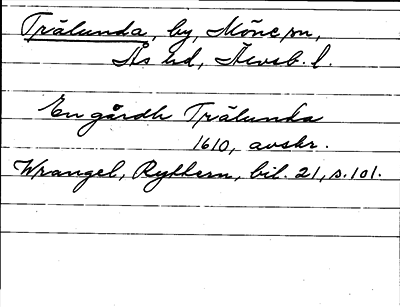 Trälunda, by, Möne sn,
Ås hd, Älvsb. l.
En gårdh Trälunda
1610, avskr.
Wrangel, Ryttern, bil. 21, s. 101.